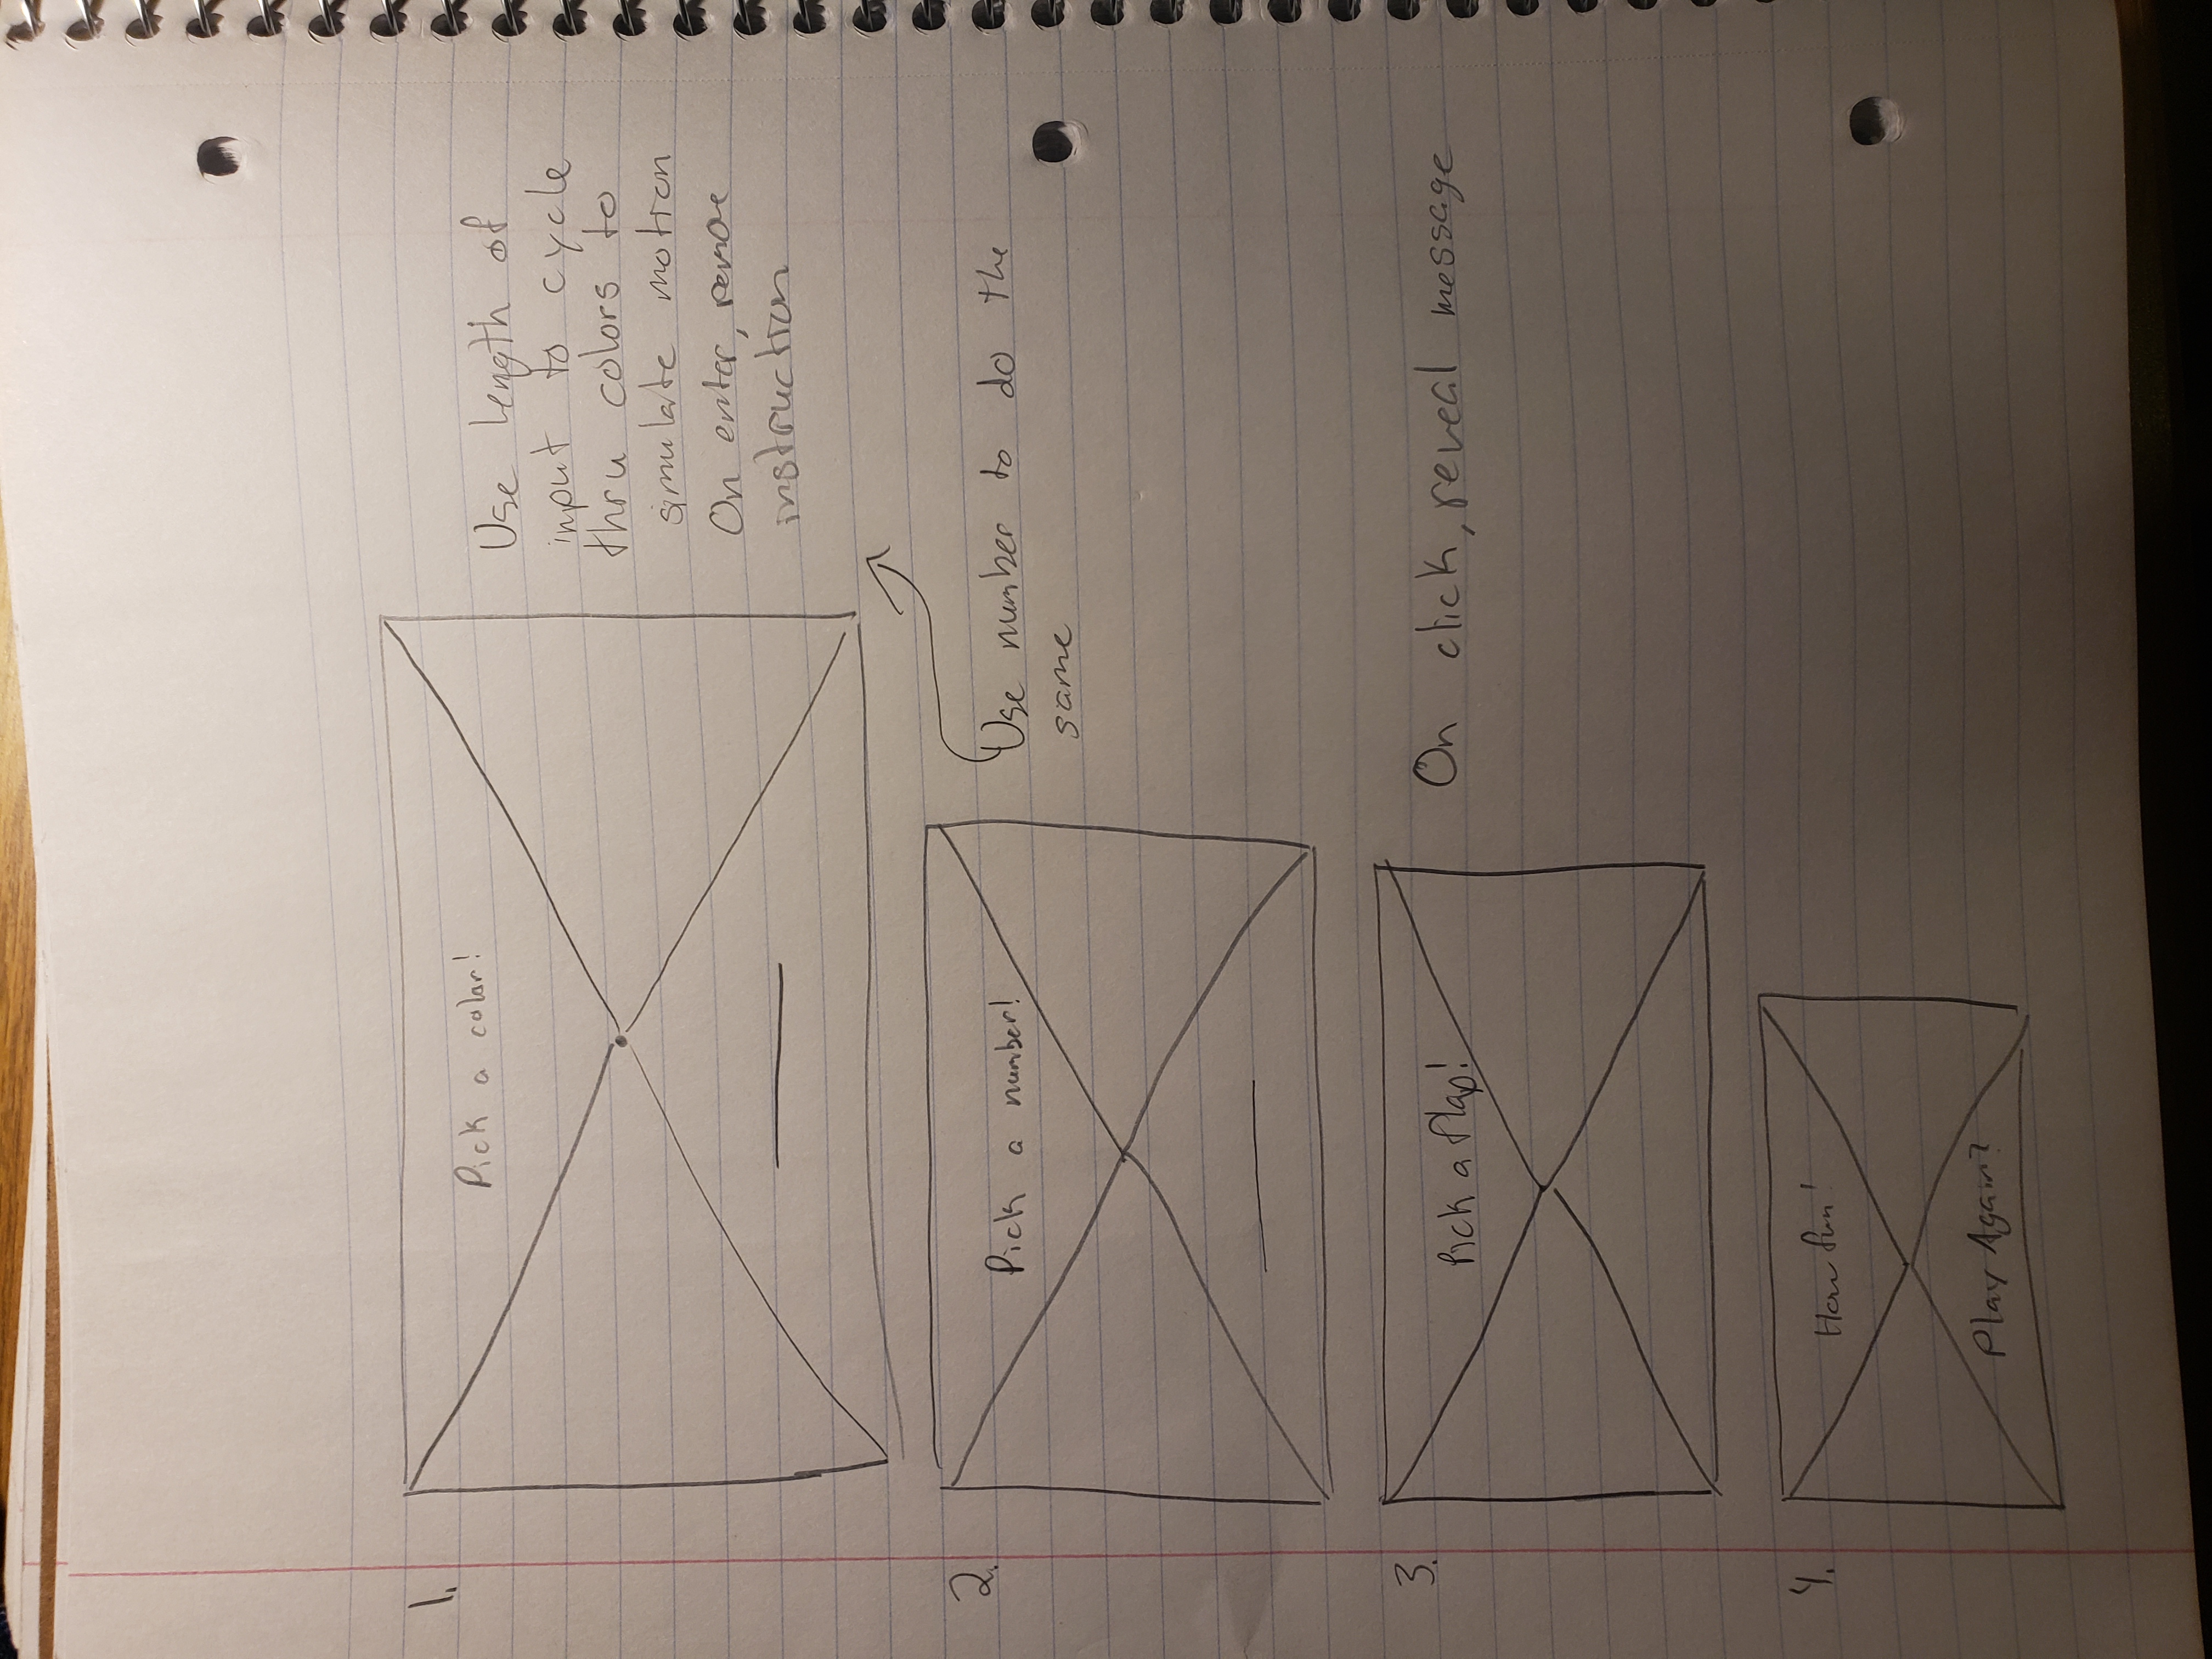 1.
Pick a color!
Use length of
input to cycle
thru colors to
simulate motion
On enter, remove
instruction
2.
Pick a number!
Use number to do the
same
3.
Pick a flap!
On click, reveal message
4.
How fun!
Play Again?